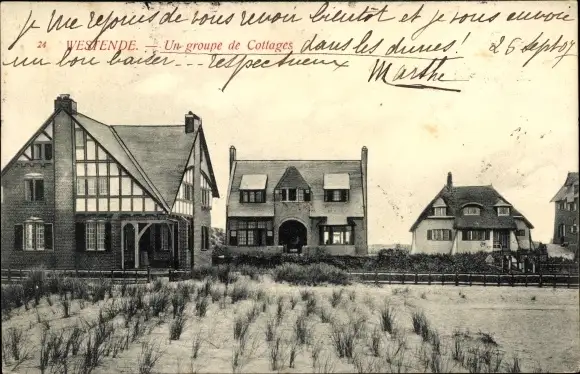 Je me rejouis de vous revoir bientôt et je vous envoie
24 WESTENDE. — Un groupe de Cottages dans les dunes! 26 Sept 07
un bon baiser... respectueux
Marthe